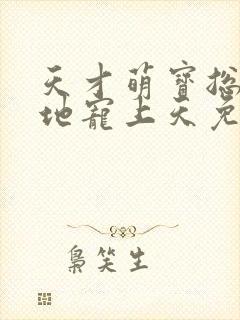 天才萌寶捴
地寵上天免
梟笑生